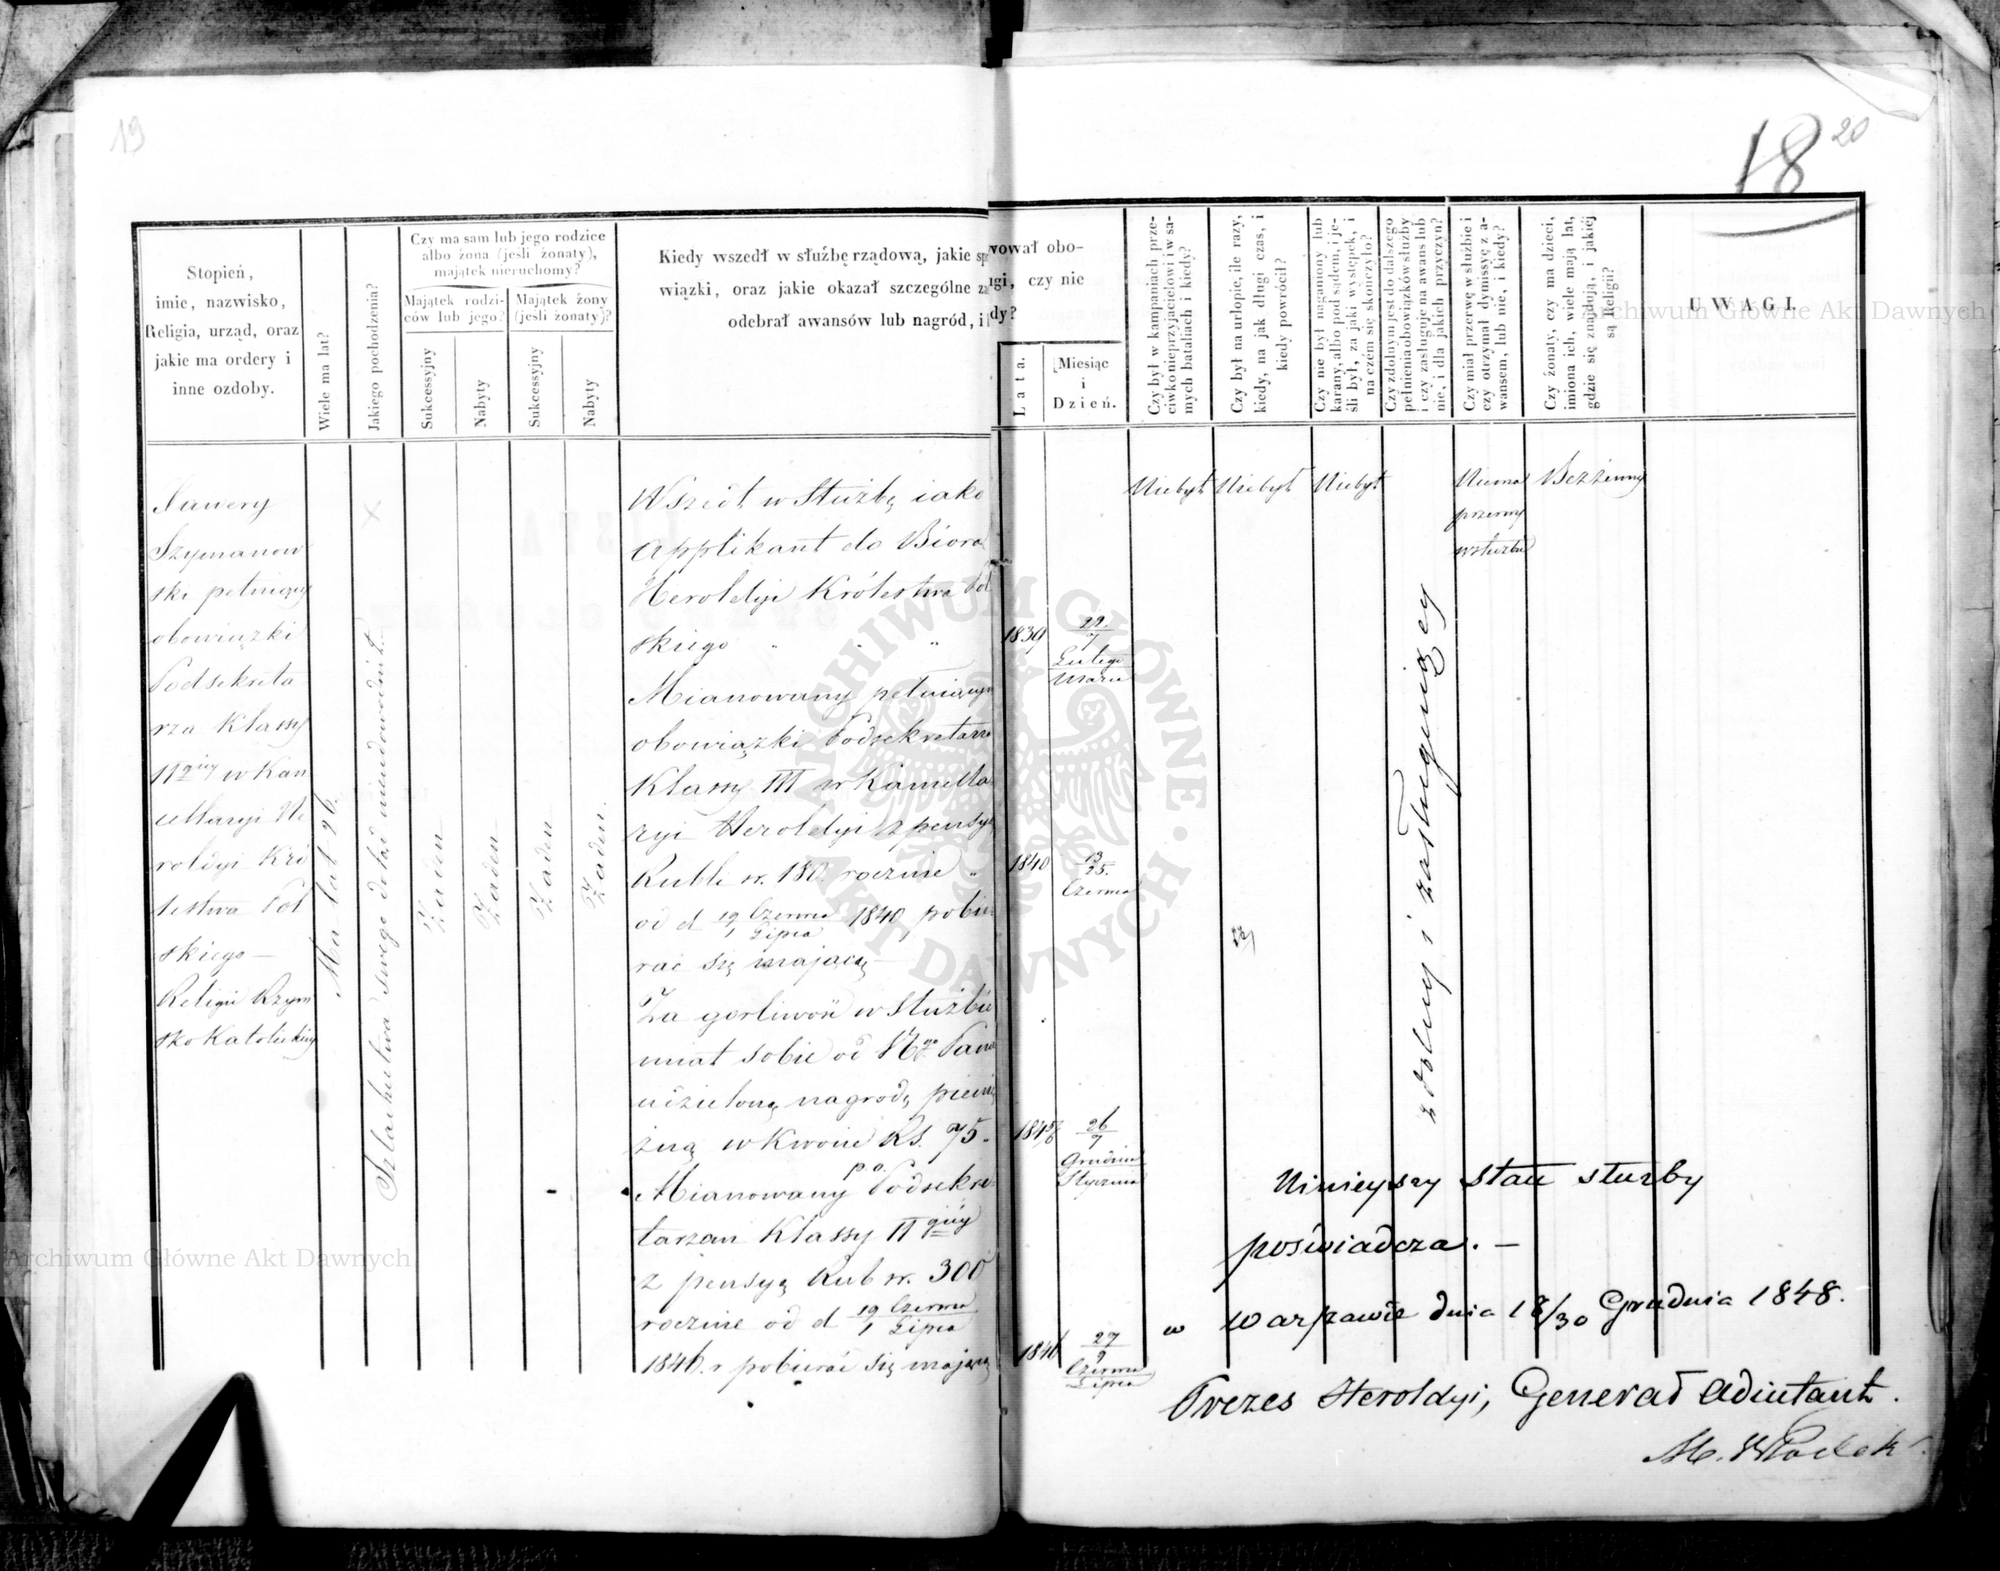 19
18 20
Stopień,
imie, nazwisko,
Religia, urząd, oraz
jakie ma ordery i
inne ozdoby.
Wiele ma lat?
Jakiego pochodzenia?
Czy ma sam lub jego rodzice
albo żona (jeśli żonaty),
majątek nieruchomy?
Majątek rodzi-
ców lub jego?
Majątek żony
(jeśli żonaty)?
Sukcessyjny
Nabyty
Sukcessyjny
Nabyty
Kiedy wszedł w służbę rządową, jakie sp
wiązki, oraz jakie okazał szczególne za
odebrał awansów lub nagród, i
wował obo-
ugi, czy nie
dy?
Lata.
Miesiąc
i
Dzień.
Czy był w kampaniach prze-
ciwko nieprzyjacielowi i w sa-
mych bataliach i kiedy?
Czy był na urlopie, ile razy,
kiedy, na jak długi czas, i
kiedy powrócił?
Czy nie był naganiony lub
karany, albo pod sądem, i je-
śli był, za jaki występek, i
na czém się skończyło?
Czy zdolnym jest do dalszego
pełnienia obowiązków służby
i czy zasługuje na awans lub
nie, i dla jakich przyczyn?
Czy miał przerwę w służbie i
czy otrzymał dymissyę z a-
wansem, lub nie, i kiedy?
Czy żonaty, czy ma dzieci,
imiona ich, wiele mają lat,
gdzie się znajdują, i jakiej
są Religii?
UWAGI.
Szymanow
ski pełniący
obowiązki
Podsekreta
rza Klassy
II giéy w Kan
cellaryi He
roldyi Kró
lestwa Pol
skiego —
Religii Rzym
sko Katolickiéy
Ma lat 26.
Szlachectwa swego dotąd nieudowodnił.
Żaden
Żaden
Żaden
Żaden.
Wszedł w Służbę iako
Applikant do Biora
Heroldyi Królestwa Pol
skiego
1839
22/7
Lutego
Marca
Mianowany pełniącym
obowiązki Podsekretarza
Klassy III w Kancella
ryi Heroldyi z pensyą
Rubli sr. 180 rocznie
1840
13/25.
Czerwca
od d 19 Czerwca/1 Lipca 1840 pobie
rać się mającą —
Za gorliwość w Służbie
miał sobie od Księ Pana
udzieloną nagrodę pienię
żną w kwocie RS. 75.
184 5/6
26/7
Grudnia
Stycznia
Mianowany p.o. Podsekre
tarzem Klassy II giéy
z pensyą Rub sr. 300
rocznie od d 19 Czerwca/1 Lipca
1846 r pobierać się mającą
1846
27/9
Czerwca
Lipca
Niebył
Niebył
Niebył
zdolny i zasługuiący
Niema
przerwy
w służbie
Bezżenny
Ninieyszy stan służby
poświadcza. —
w Warszawie dnia 18/30 Grudnia 1848.
Prezes Heroldyi, Generał Adiutant.
Archiwum Główne Akt Dawnych
Archiwum Główne Akt Dawnych
ARCHIWUM GŁÓWNE AKT DAWNYCH